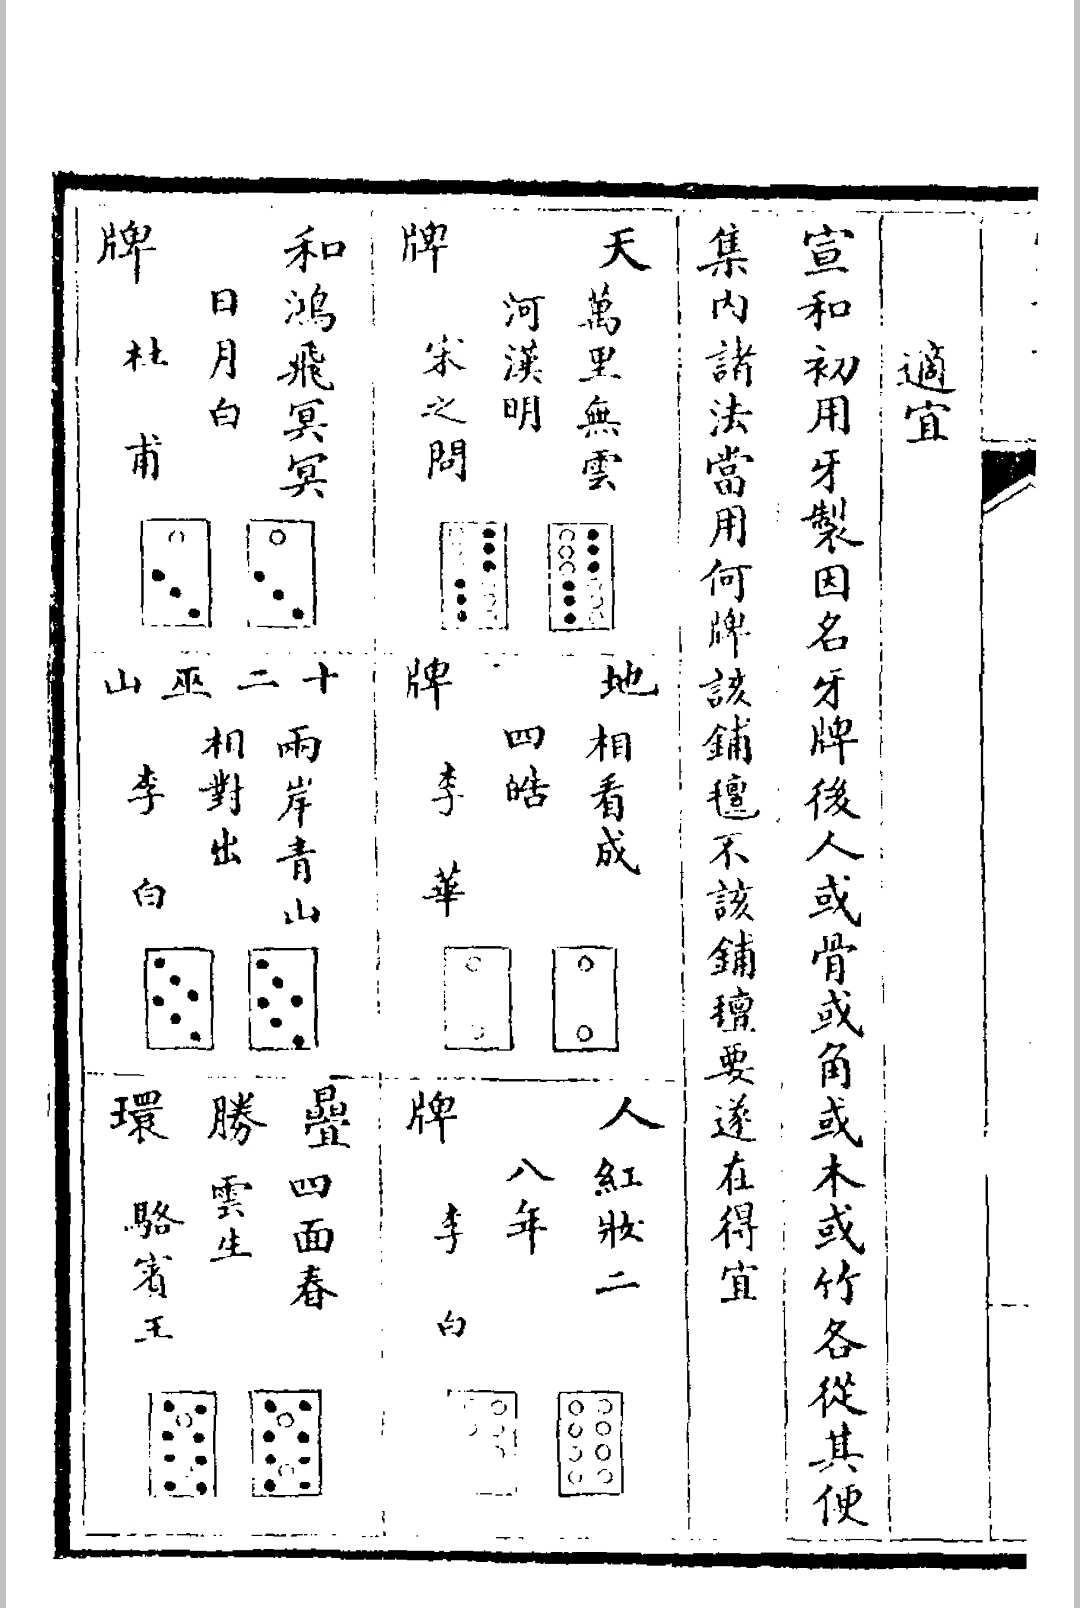 適宜
宣和初用牙製因名牙牌後人或骨或角或木或竹各從其便
集內諸法當用何牌該鋪氊不該鋪氊要遂在得宜
天牌
萬里無雲
河漢明
宋之問
地牌
相看成
四皓
李華
人牌
紅妝二
八年
李白
和牌
鴻飛冥冥
日月白
杜甫
十二巫山
兩岸青山
相對出
李白
疊勝環
四面春
雲生
駱賓王